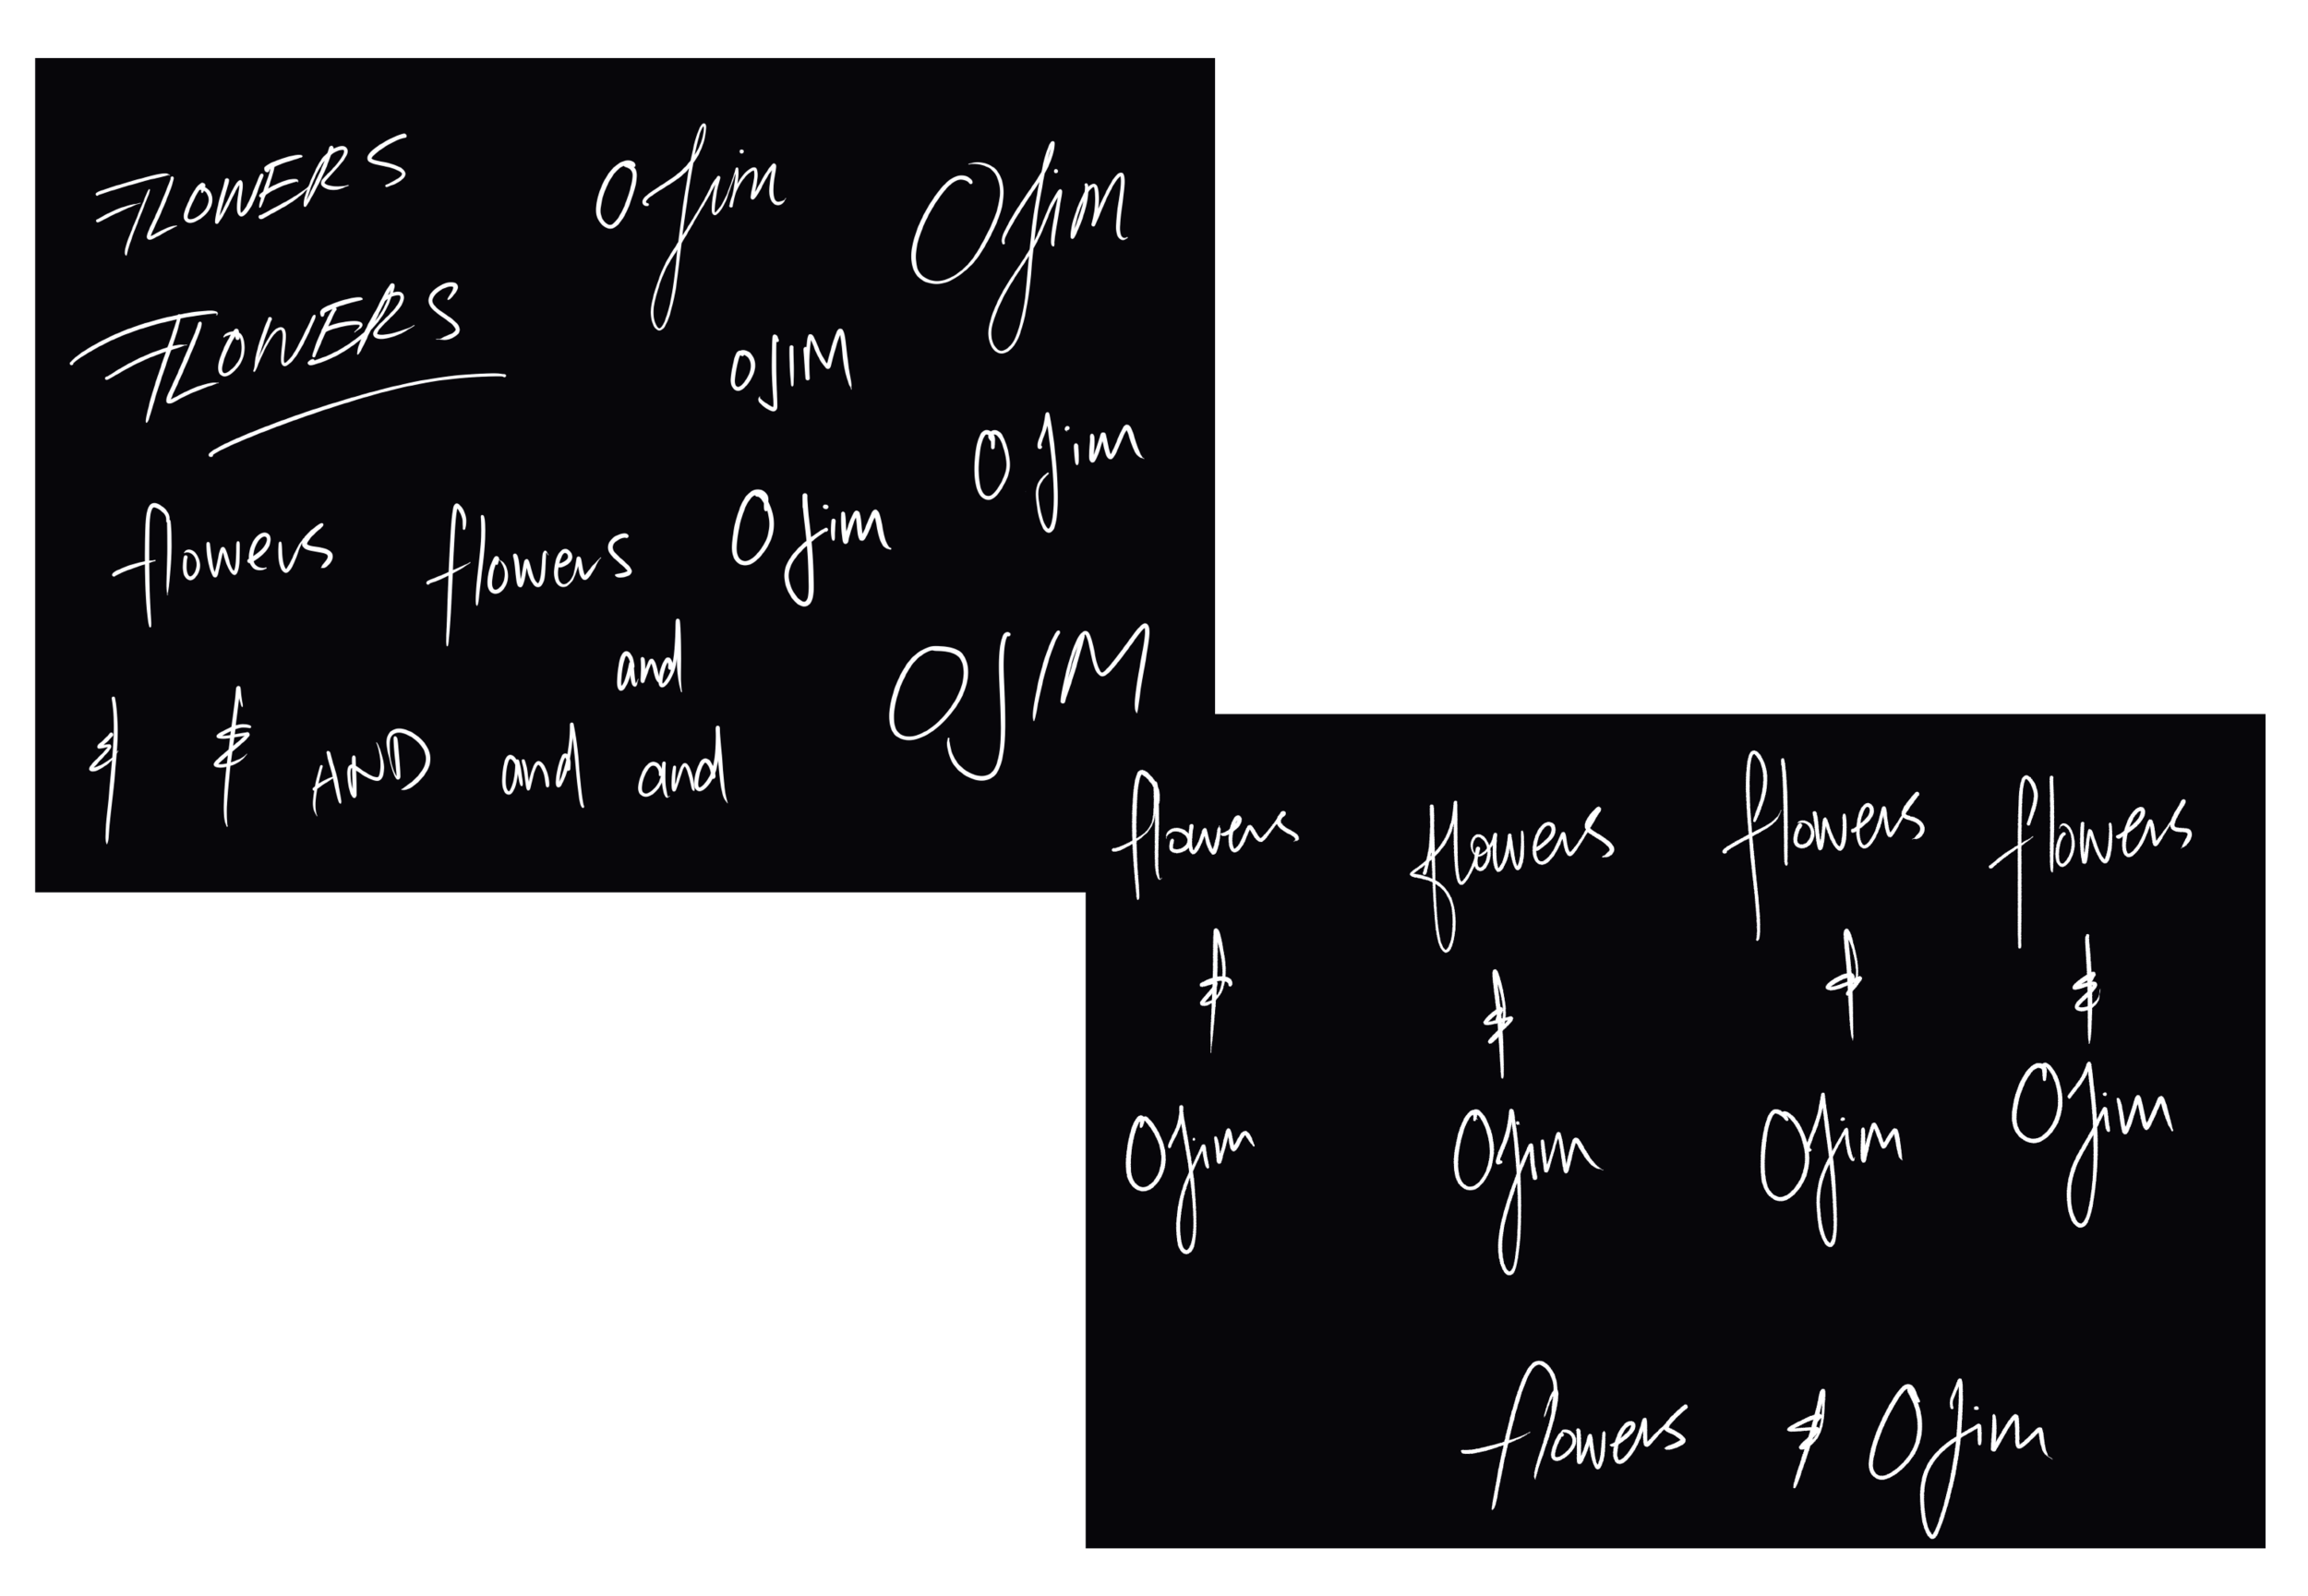 FLOWERS Ojim Ojim
FLOWERS OJIM
Ojim
flowers flowers Ojim
and OJIM
& & AND and and
flowers flowers flowers flowers
& & & &
Ojim Ojim Ojim Ojim
flowers & Ojim